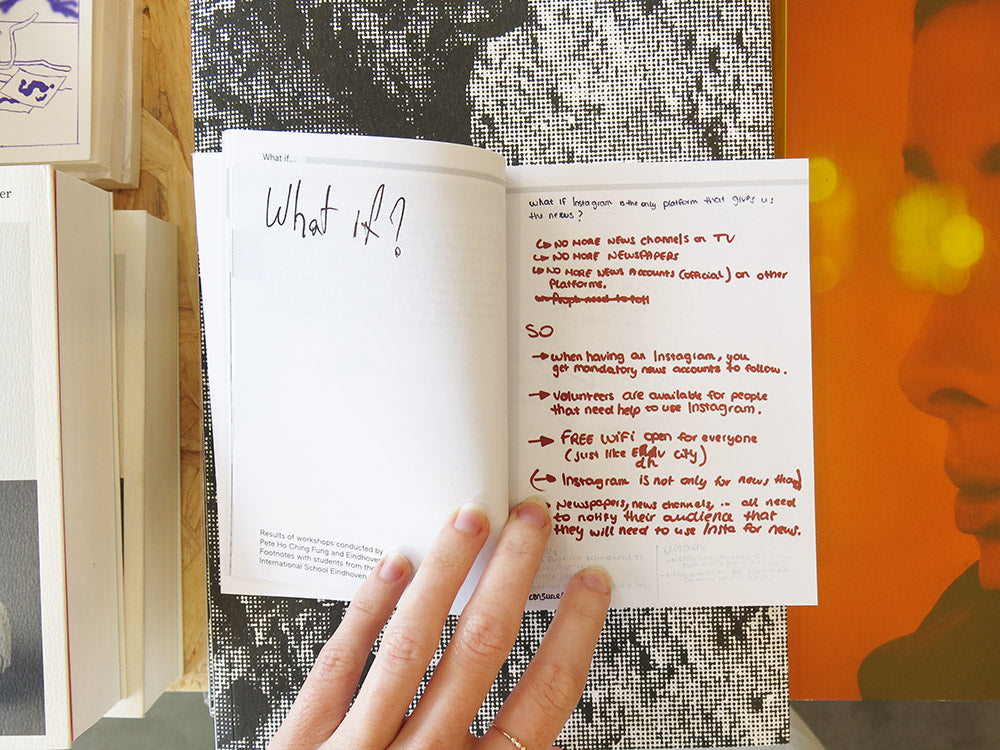 er
What if...
What if?
Results of workshops conducted by
Pete Ho Ching Fung and Eindhoven
Footnotes with students from the
International School Eindhoven
What if Instagram is the only platform that gives us
the news?
↳ NO MORE NEWS channels on TV
↳ NO MORE NEWSPAPERS
↳ NO MORE NEWS ACCOUNTS (official) on other
platforms.
↳ People need to
SO
→ when having an Instagram, you
get mandatory news accounts to follow.
→ Volunteers are available for people
that need help to use Instagram.
→ FREE WiFi open for everyone
(just like city)
(→ Instagram is not only for news tho)
Newspapers, news channels, .. all need
to notify their audience that
they will need to use Insta for news.